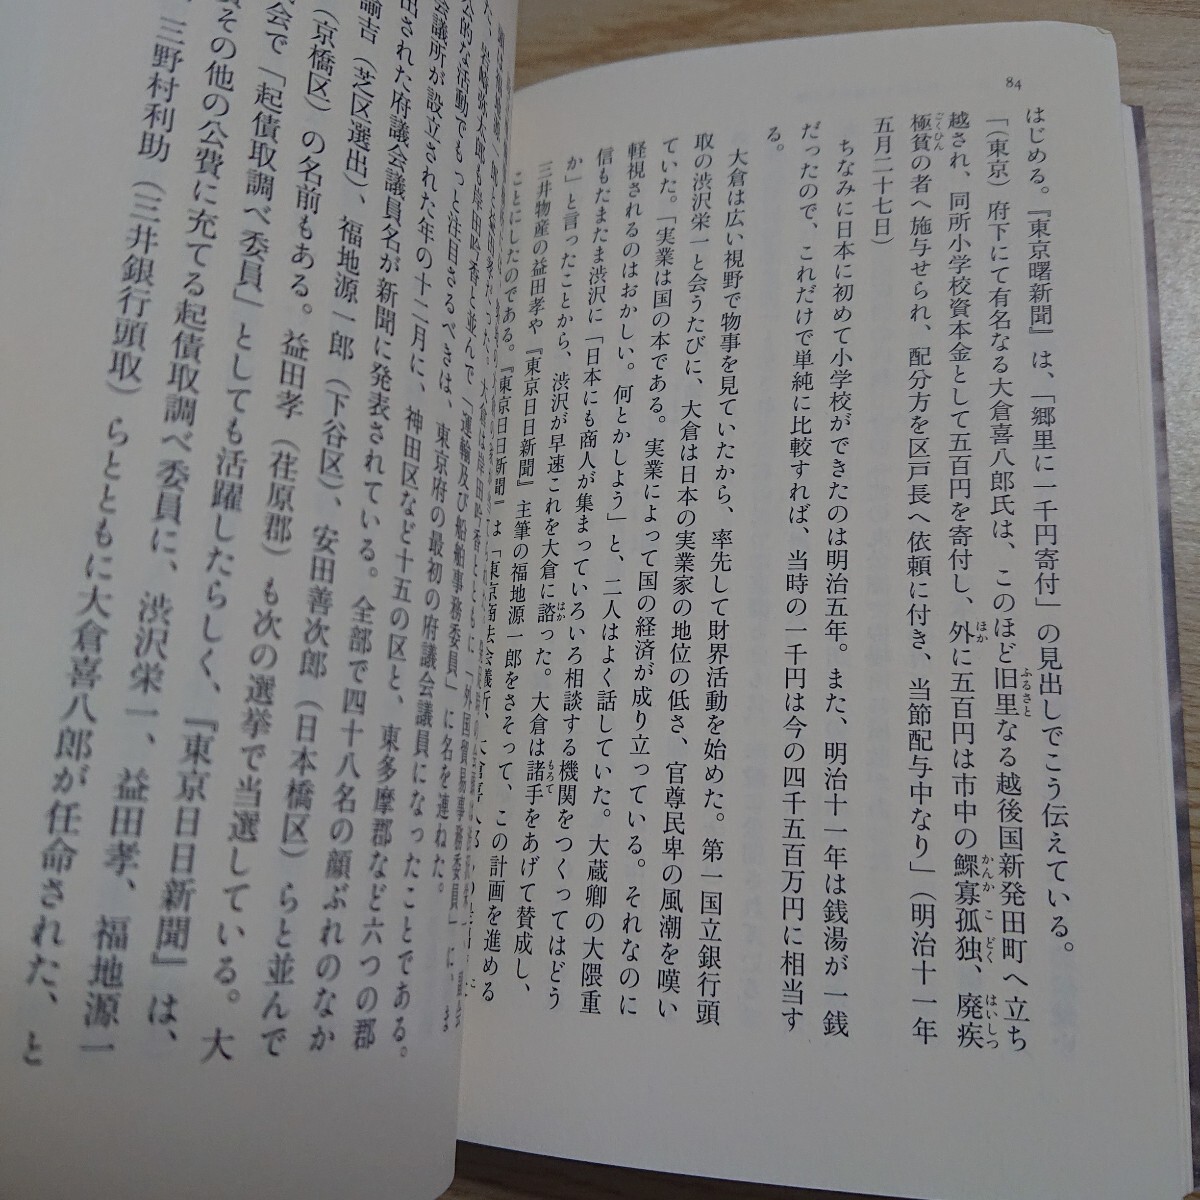 84
はじめる。『東京曙新聞』は、「郷里に一千円寄付」の見出しでこう伝えている。
「(東京)府下にて有名なる大倉喜八郎氏は、このほど旧里なる越後国新発田町へ立ち
ふるさと
越され、同所小学校資本金として五百円を寄付し、外に五百円は市中の鰥寡孤独、廃疾
ほか
かんか こ どく
はいしつ
極貧の者へ施与せられ、配分方を区戸長へ依頼に付き、当節配与中なり」(明治十一年
ごくひん
五月二十七日)
ちなみに日本に初めて小学校ができたのは明治五年。また、明治十一年は銭湯が一銭
だったので、これだけで単純に比較すれば、当時の一千円は今の四千五百万円に相当す
る。
大倉は広い視野で物事を見ていたから、率先して財界活動を始めた。第一国立銀行頭
取の渋沢栄一と会うたびに、大倉は日本の実業家の地位の低さ、官尊民卑の風潮を嘆い
ていた。「実業は国の本である。実業によって国の経済が成り立っている。それなのに
軽視されるのはおかしい。何とかしよう」と、二人はよく話していた。大蔵卿の大隈重
信もたまたま渋沢に「日本にも商人が集まっていろいろ相談する機関をつくってはどう
か」と言ったことから、渋沢が早速これを大倉に諮った。大倉は諸手をあげて賛成し、
はか
もろて
三井物産の益田孝や『東京日日新聞』主筆の福地源一郎をさそって、この計画を進める
ことにしたのである。『東京日日新聞』は「東京商法会議所、
岩崎弥太郎も岸田吟香と並んで「運輸及び船舶事務委員」に名を連ねた。
公的な活動でもっと注目さるべきは、東京府の最初の府議会議員になったことである。
会議所が設立された年の十二月に、神田区など十五の区と、東多摩郡など六つの郡
出された府議会議員名が新聞に発表されている。全部で四十八名の顔ぶれのなか
諭吉(芝区選出)、福地源一郎(下谷区)、安田善次郎(日本橋区)らと並んで
(京橋区)の名前もある。益田孝(荏原郡)も次の選挙で当選している。大
会で「起債取調べ委員」としても活躍したらしく、『東京日日新聞』は、
その他の公費に充てる起債取調べ委員に、渋沢栄一、益田孝、福地源一
三野村利助(三井銀行頭取)らとともに大倉喜八郎が任命された、と